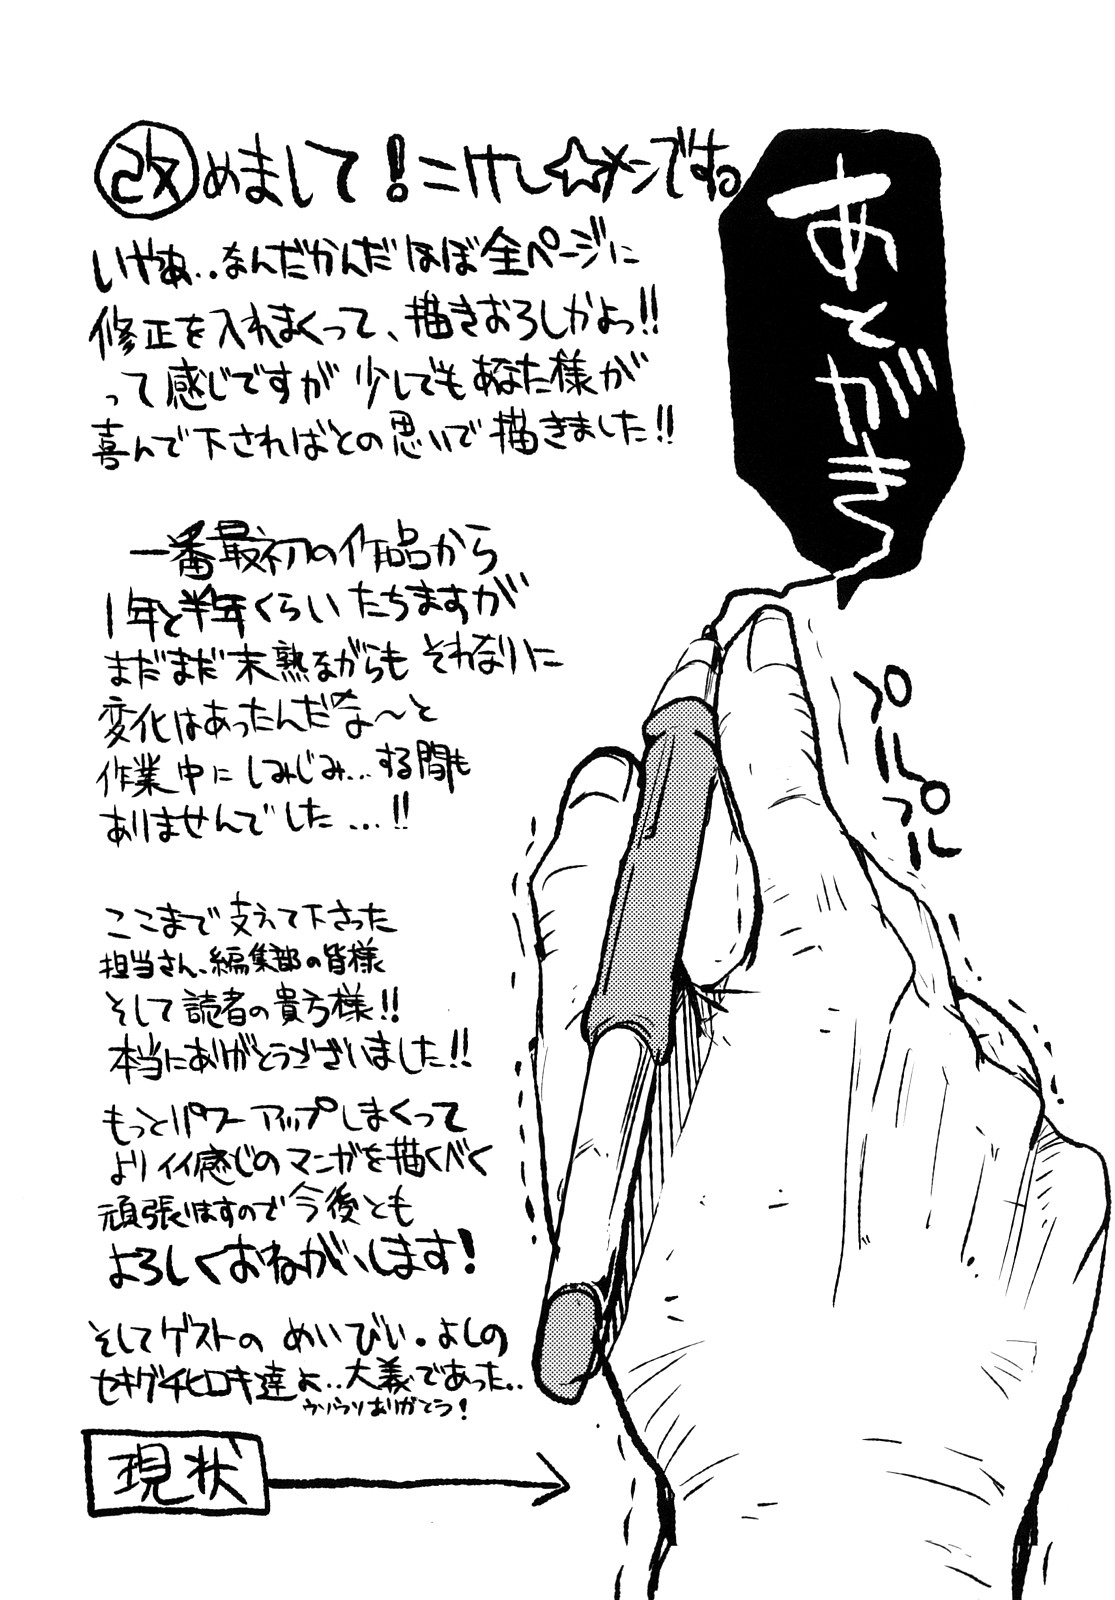 あとがき
改めまして!こけし☆メンです。
いやぁ..なんだかんだほぼ全ページに
修正を入れまくって、描きおろしかよっ!!
って感じですが少しでもあなた様が
喜んで下さればとの思いで描きました!!
一番最初の作品から
1年と半年くらいたちますが
まだまだ未熟ながらもそれなりに
変化はあったんだなぁ〜と
作業中にしみじみ...する間も
ありませんでした...!!
ここまで支えて下さった
担当さん、編集部の皆様
そして読者の貴方様!!
本当にありがとうございました!!
もっとパワーアップしまくって
よりイイ感じのマンガを描くべく
頑張りますので今後とも
よろしくおねがいします!
そしてゲストのめいびい・よしの
セキグチヒロキ達よ..大義であった..
ウソウソありがとう!
現状
プルプル